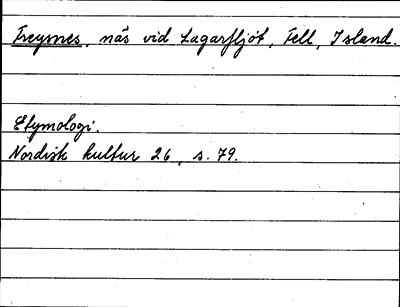 Freysnes, näs vid Lagarfljót, Fell, Island.
Etymologi.
Nordisk kultur 26, s. 79.